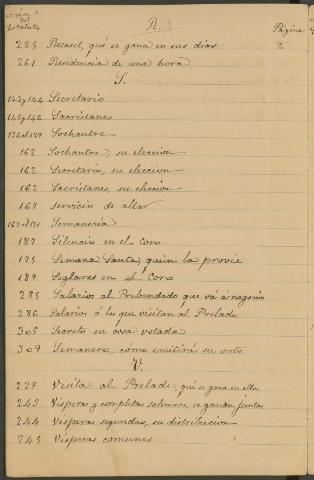 R. Página
225 Recesit, qué se gana en sus dias
261 Residencia de una hora
S.
143 y 144 Secretario
145 y 146 Sacristanes
126 al 129 Sochantre
162 Sochantre, su eleccion
162 Secretario, su eleccion
162 Sacristanes, su eleccion
167 Servicio de altar
169 al 171 Semanería
187 Silencio en el Coro
175 Semana Santa, quien la provée
189 Seglares en el Coro
285 Salarios al Prebendado que vá á negocios
286 Salarios á los que visitan al Prelado
305 Secreto en cosa votada
307 Semanero, cómo emitirá su voto
V.
227 Visita al Prelado, qué se gana en ella
243 Vísperas y completas solemnes, se ganan juntas
244 Vísperas segundas, su distribucion
245 Vísperas comunes